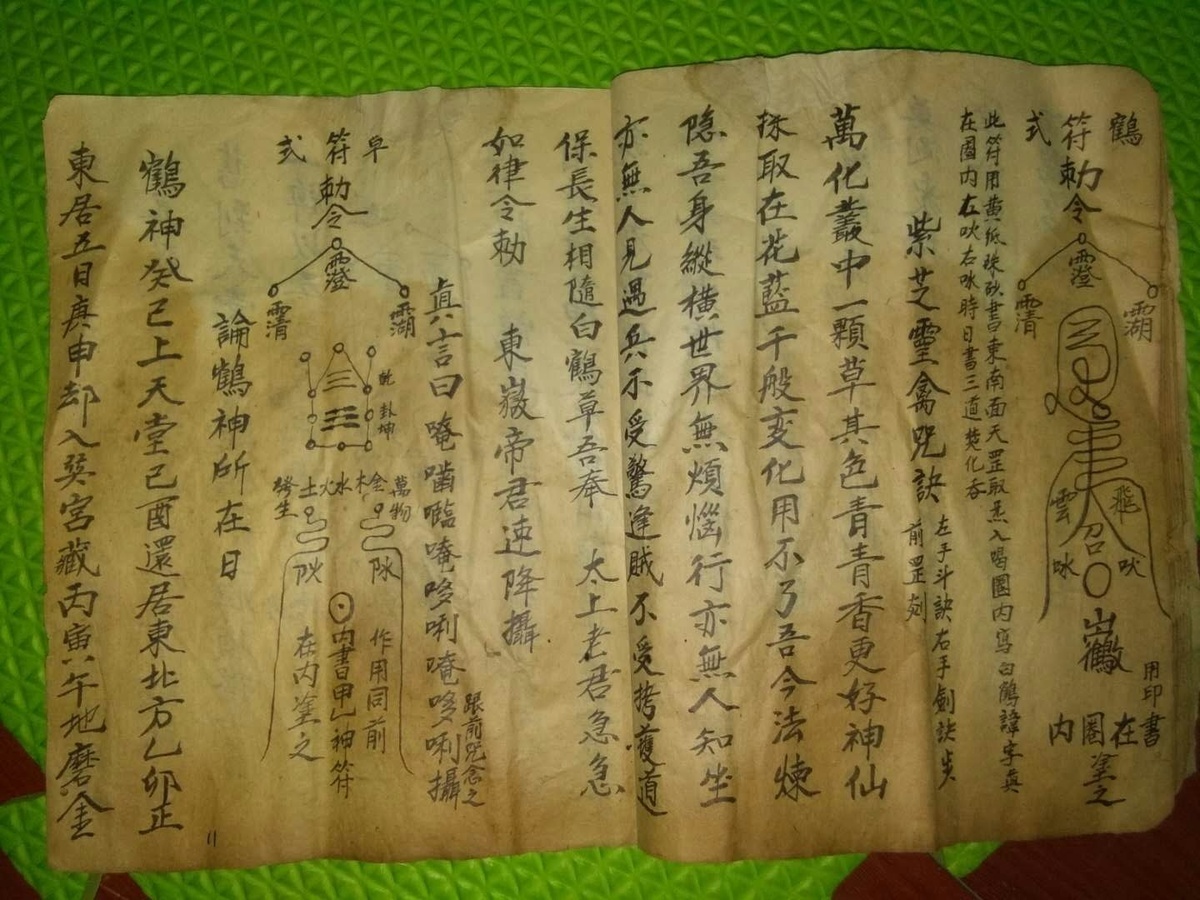 鶴符式
勅令
䨬
用印書在圈內
塗之
飛吹
雲
召
此符用黃紙硃砂書東南面天罡取炁入喝圈內寫白鶴諱字眞
在圈内左吹右㕽時日書三道焚化吞
紫芝靈禽咒訣
左手斗訣右手劍訣步
前罡刻
萬化叢中一顆草其色青青香更好神仙
採取在花藍千般变化用不了吾今法煉
隐吾身縱橫世界無煩惱行亦無人知坐
亦無人見過兵不受驚逢賊不受拷護道
保長生相隨白鶴草吾奉 太上老君急急
如律令勅 東嶽帝君速降攝
眞言曰唵嚙㘕唵哆唎唵哆唎攝
跟前咒念之
草符式
勅令
乾坤卦
萬物
金木水火土
發生
作用同前
内書甲乙神符
在内塗之
論鶴神所在日
鶴神癸巳上天堂己酉還居東北方乙卯正
東居五日庚申却入巽宮藏丙寅午地磨金
11